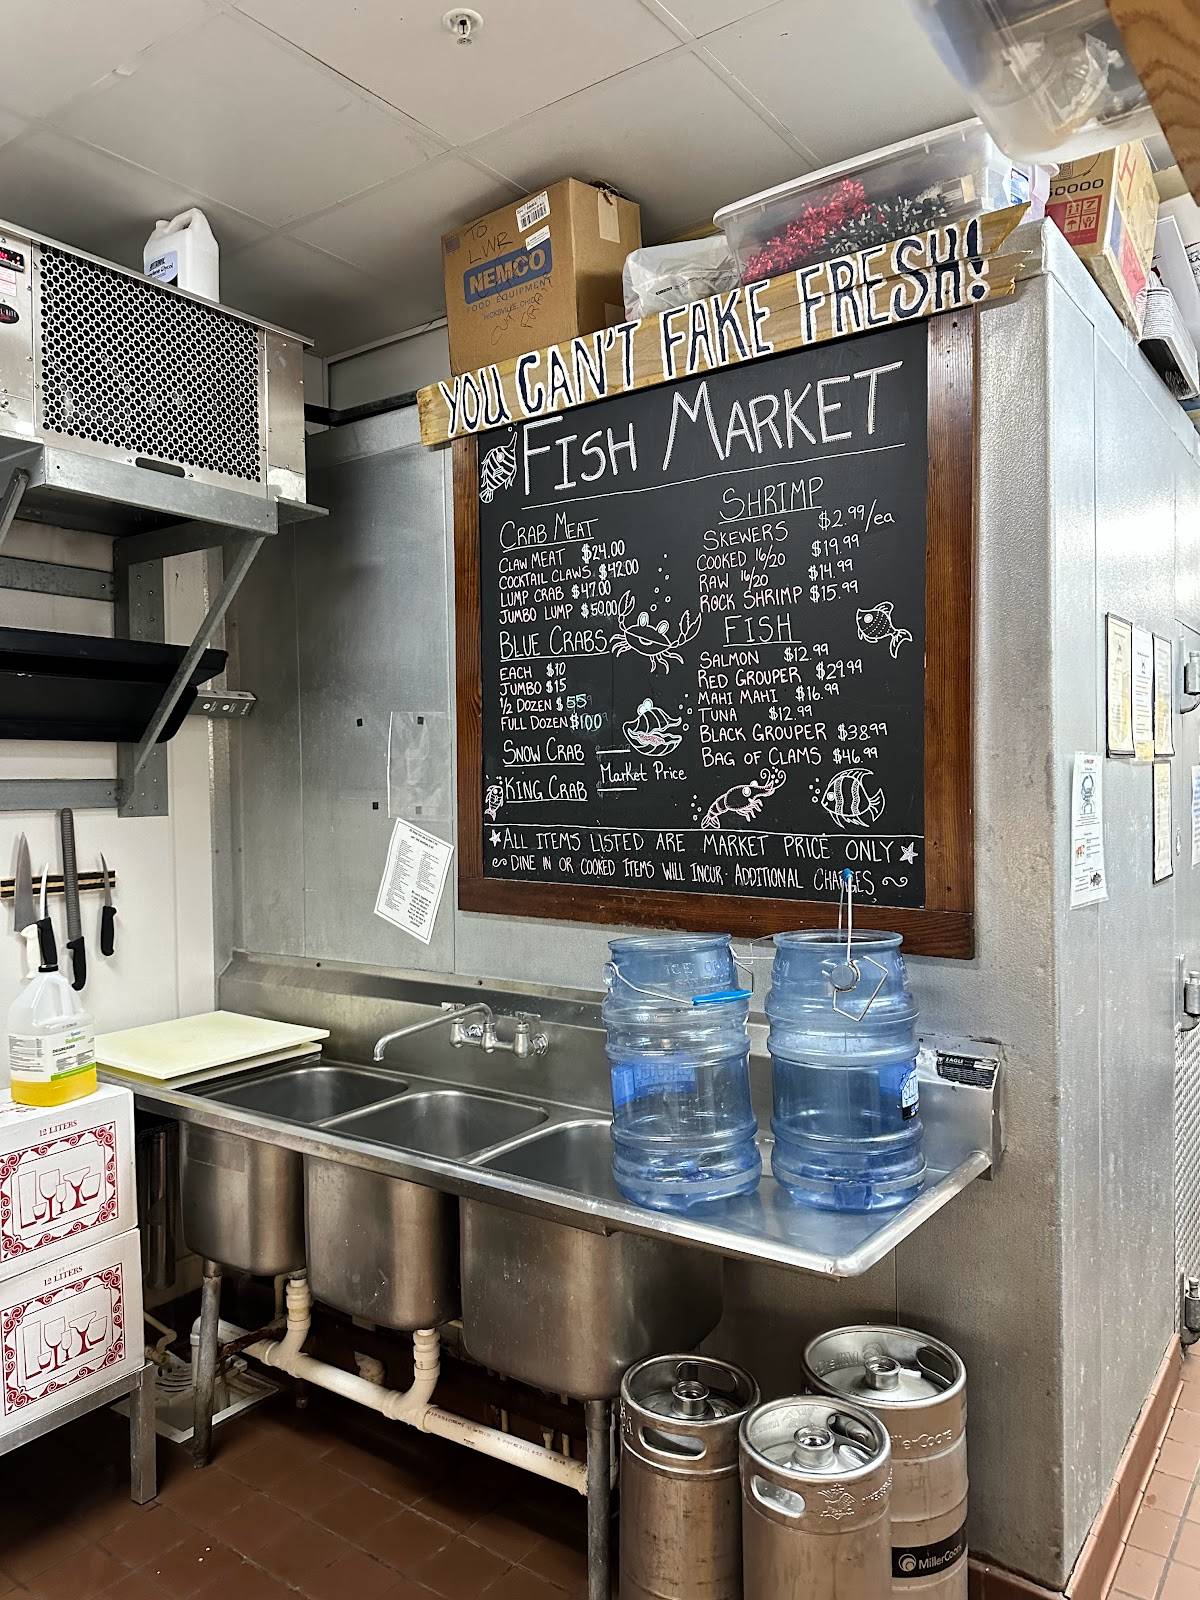 TO
LWR
NEMCO
FOOD EQUIPMENT
50000
YOU CAN'T FAKE FRESH!
FISH MARKET
CRAB MEAT
CLAW MEAT $24.00
COCKTAIL CLAWS $42.00
LUMP CRAB $47.00
JUMBO LUMP $50.00
BLUE CRABS
EACH $10
JUMBO $15
1/2 DOZEN $55
FULL DOZEN $100
SNOW CRAB
KING CRAB
Market Price
SHRIMP
SKEWERS $2.99/ea
COOKED 16/20 $19.99
RAW 16/20 $14.99
ROCK SHRIMP $15.99
FISH
SALMON $12.99
RED GROUPER $29.99
MAHI MAHI $16.99
TUNA $12.99
BLACK GROUPER $38.99
BAG OF CLAMS $46.99
ALL ITEMS LISTED ARE MARKET PRICE ONLY
DINE IN OR COOKED ITEMS WILL INCUR ADDITIONAL CHARGES
ICE
EAGLE
12 LITERS
12 LITERS
MillerCoors
MillerCoors